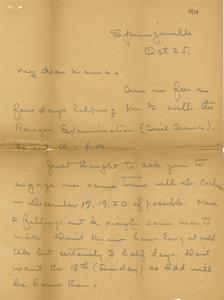 1910
Springerville
Oct 25.
My dear Mama -
Am in for a
few days helping Mr. G. with the
Ranger Examination (Civil Service),
P.M.
Just thought to ask you to
engage me some time with Dr.
- December 17, 19, 20 if possible. Have
2 fillings and maybe some more to
make. Don't know how long it will
take but certainly 3 half days. Don't
want the 18th (Sunday) as Dad will
be home then.